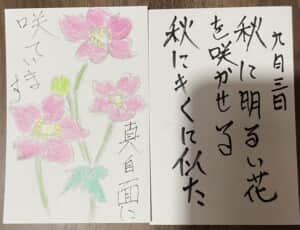 九月三日
秋に明るい花
を咲かせる
秋にきくに似た
真自面に
咲ていきます